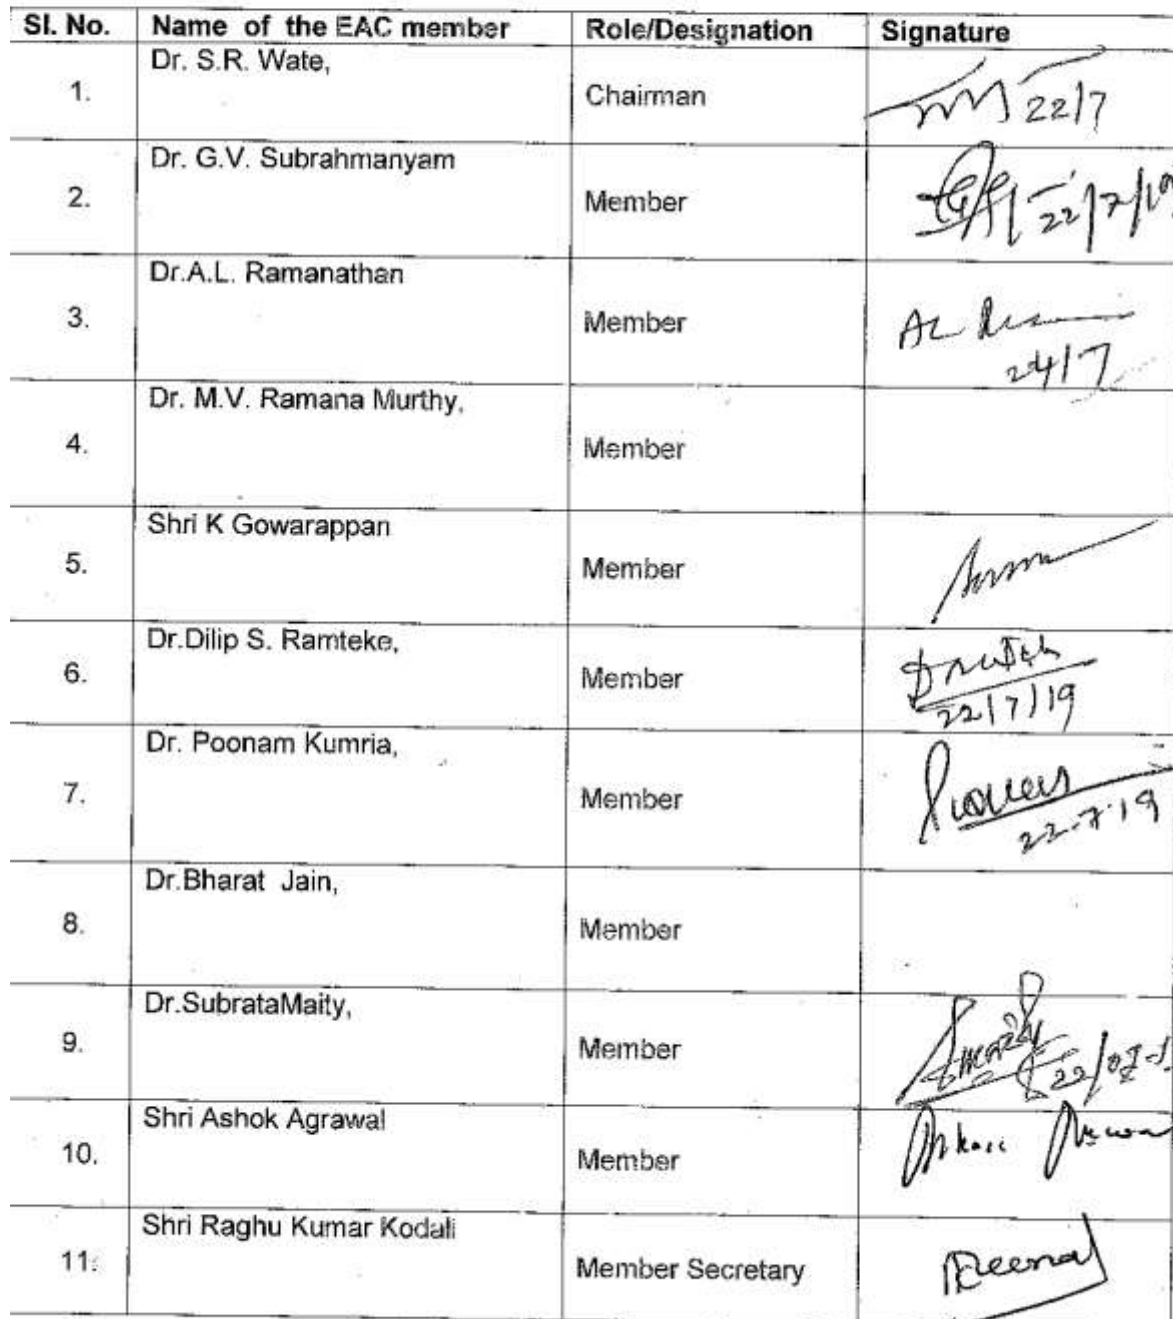 Sl. No. Name of the EAC member Role/Designation Signature
Dr. S.R. Wate,
1. Chairman
22/7
Dr. G.V. Subrahmanyam
2. Member
22/7/19
Dr.A.L. Ramanathan
3. Member
AL
24/7
Dr. M.V. Ramana Murthy,
4. Member
Shri K Gowarappan
5. Member
Dr.Dilip S. Ramteke,
6. Member
22/7/19
Dr. Poonam Kumria,
7. Member
22.7.19
Dr.Bharat Jain,
8. Member
Dr.SubrataMaity,
9. Member
Shri Ashok Agrawal
10. Member
Shri Raghu Kumar Kodali
11. Member Secretary